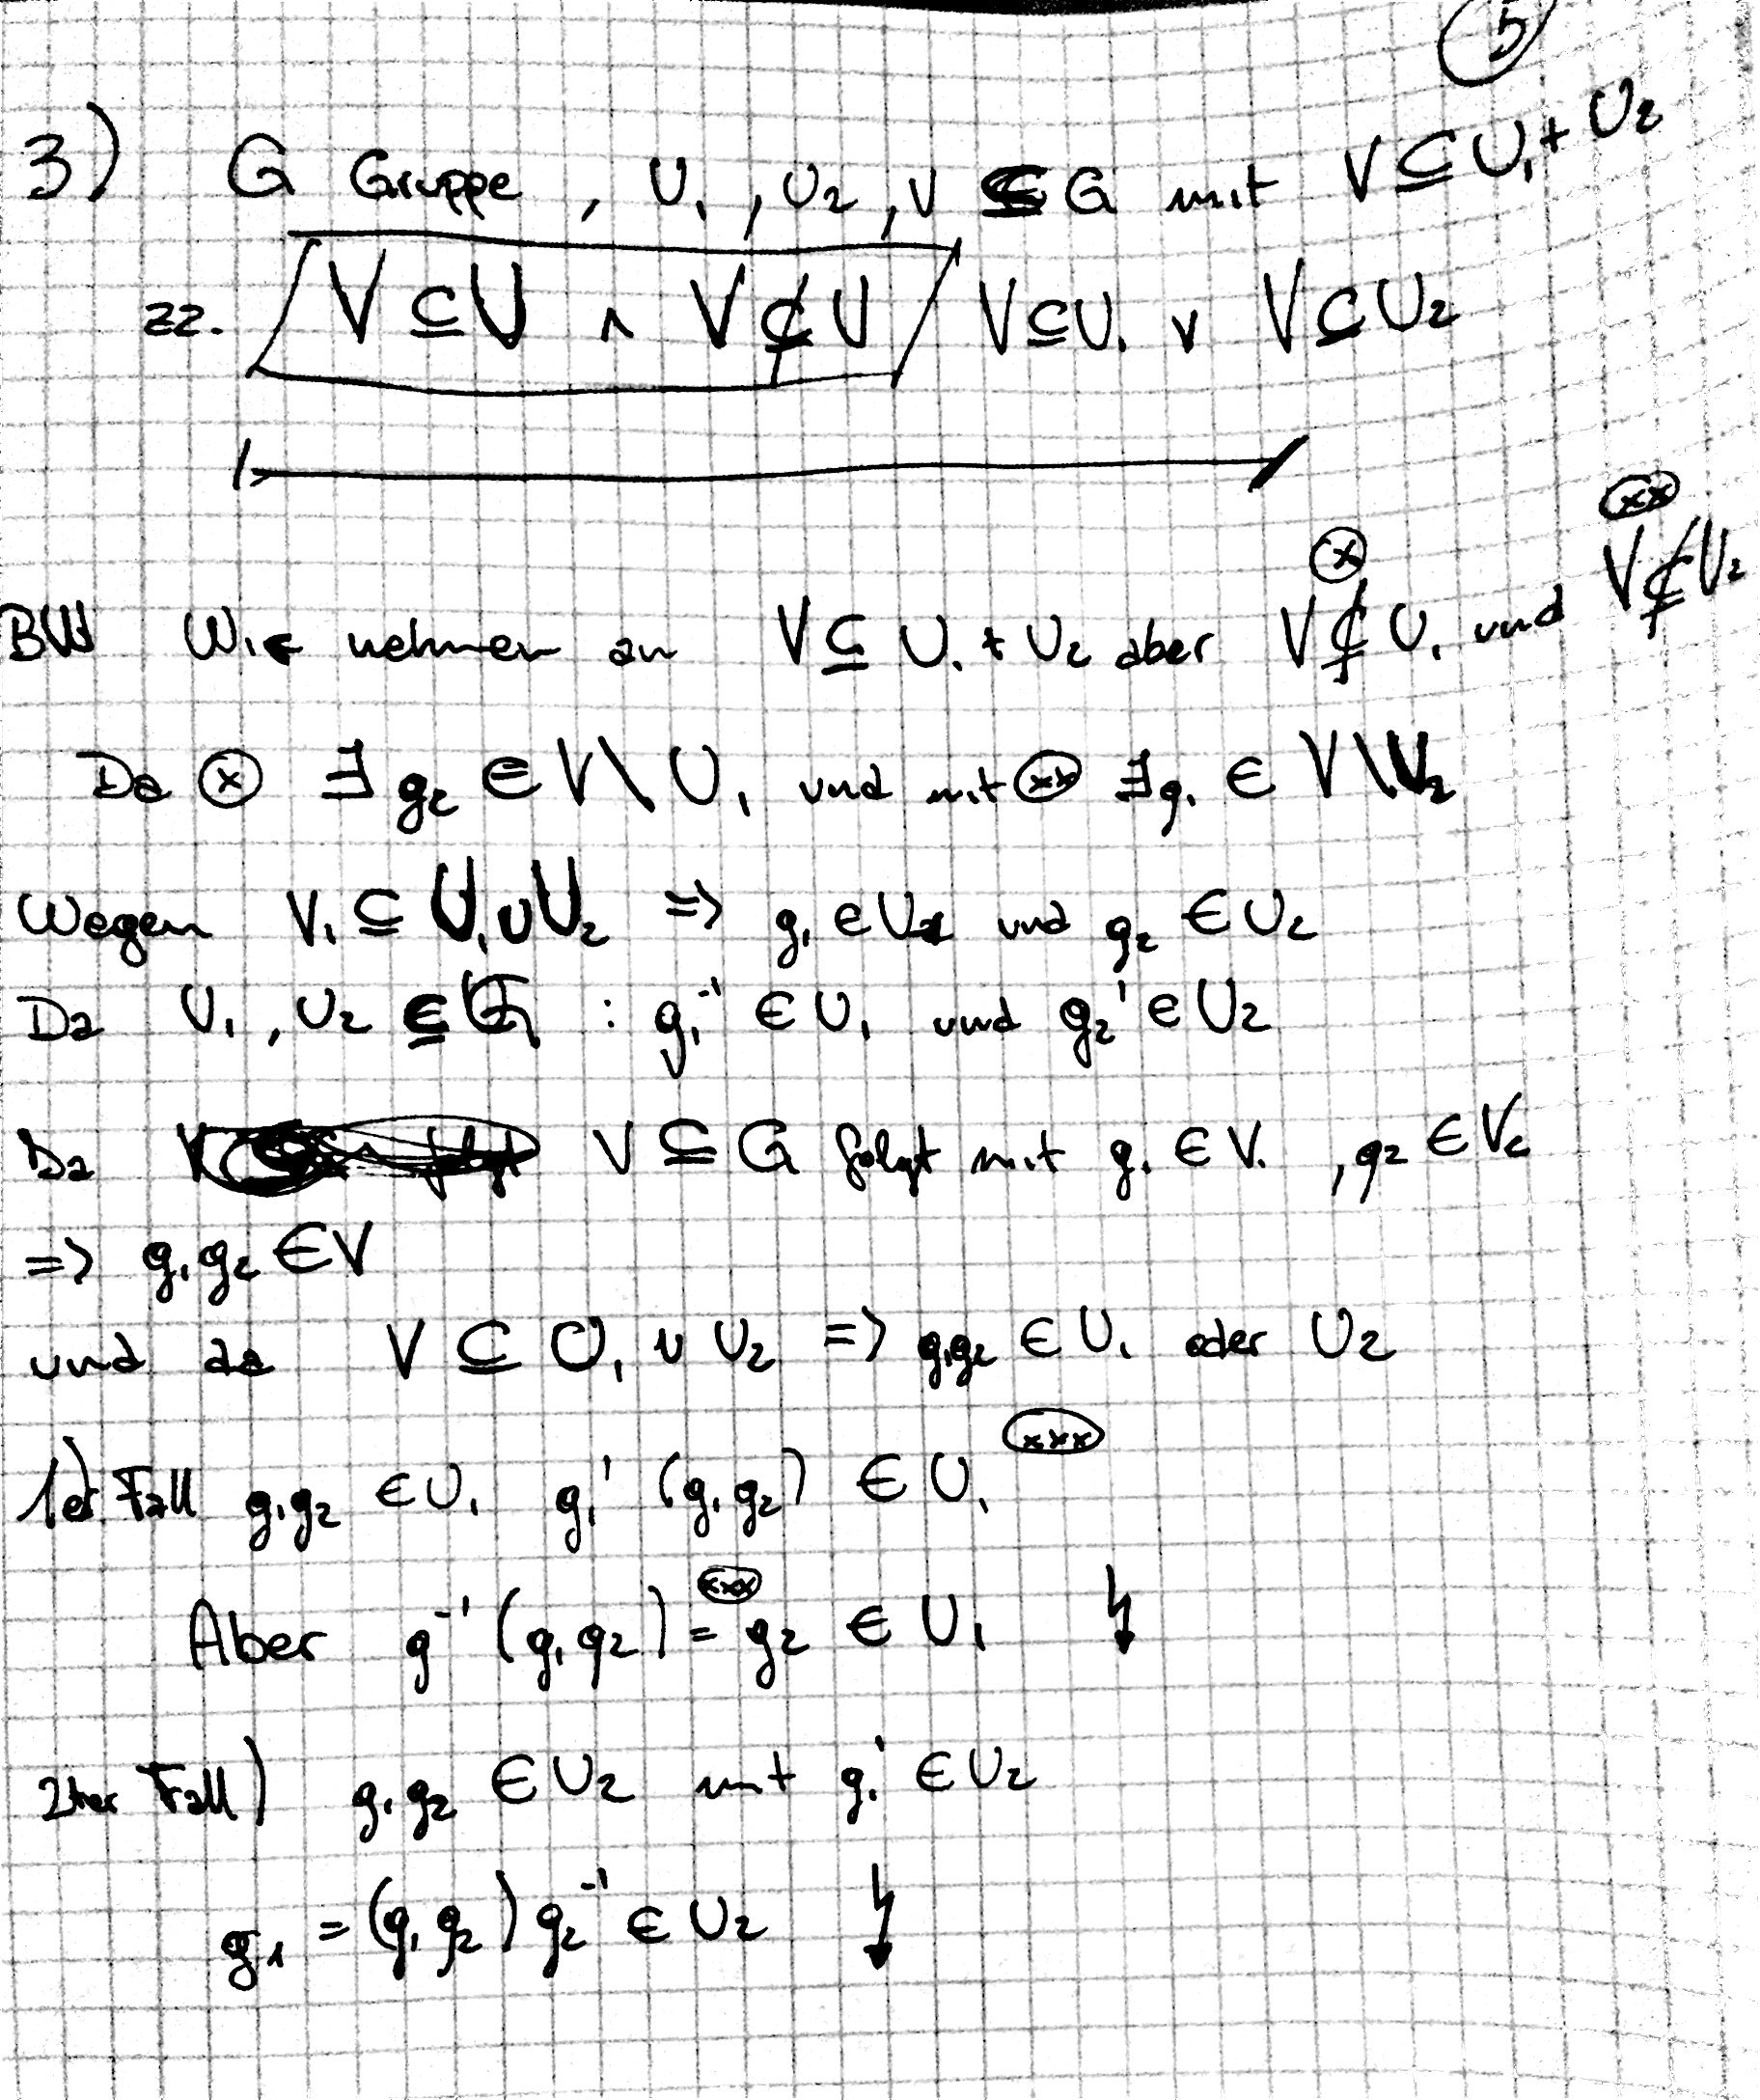 5
3) G Gruppe , U₁ , U₂ , V ⊆ G mit V ⊆ U₁ + U₂
zz. V ⊆ U ∧ V ⊈ U V ⊆ U₁ ∨ V ⊆ U₂
(x) (xx)
BW Wir nehmen an V ⊆ U₁ + U₂ aber V ⊈ U₁ und V ⊈ U₂
Da (x) ∃ g₂ ∈ V \ U₁ und mit (xx) ∃ g₁ ∈ V \ U₂
Wegen V₁ ⊆ U₁ ∪ U₂ => g₁ ∈ U₁ und g₂ ∈ U₂
Da U₁ , U₂ ⊆ G : g₁⁻¹ ∈ U₁ und g₂⁻¹ ∈ U₂
Da V ⊆ G folgt mit g₁ ∈ V₁ , g₂ ∈ V₂
=> g₁ g₂ ∈ V
und da V ⊆ U₁ ∪ U₂ => g₁g₂ ∈ U₁ oder U₂
1er Fall) g₁g₂ ∈ U₁ g₁⁻¹ (g₁g₂) ∈ U₁ (xxx)
Aber g⁻¹ (g₁g₂) =(xxx) g₂ ∈ U₁ ↯
2ter Fall) g₁g₂ ∈ U₂ mit g₁⁻¹ ∈ U₂
g₁ = (g₁g₂) g₂⁻¹ ∈ U₂ ↯